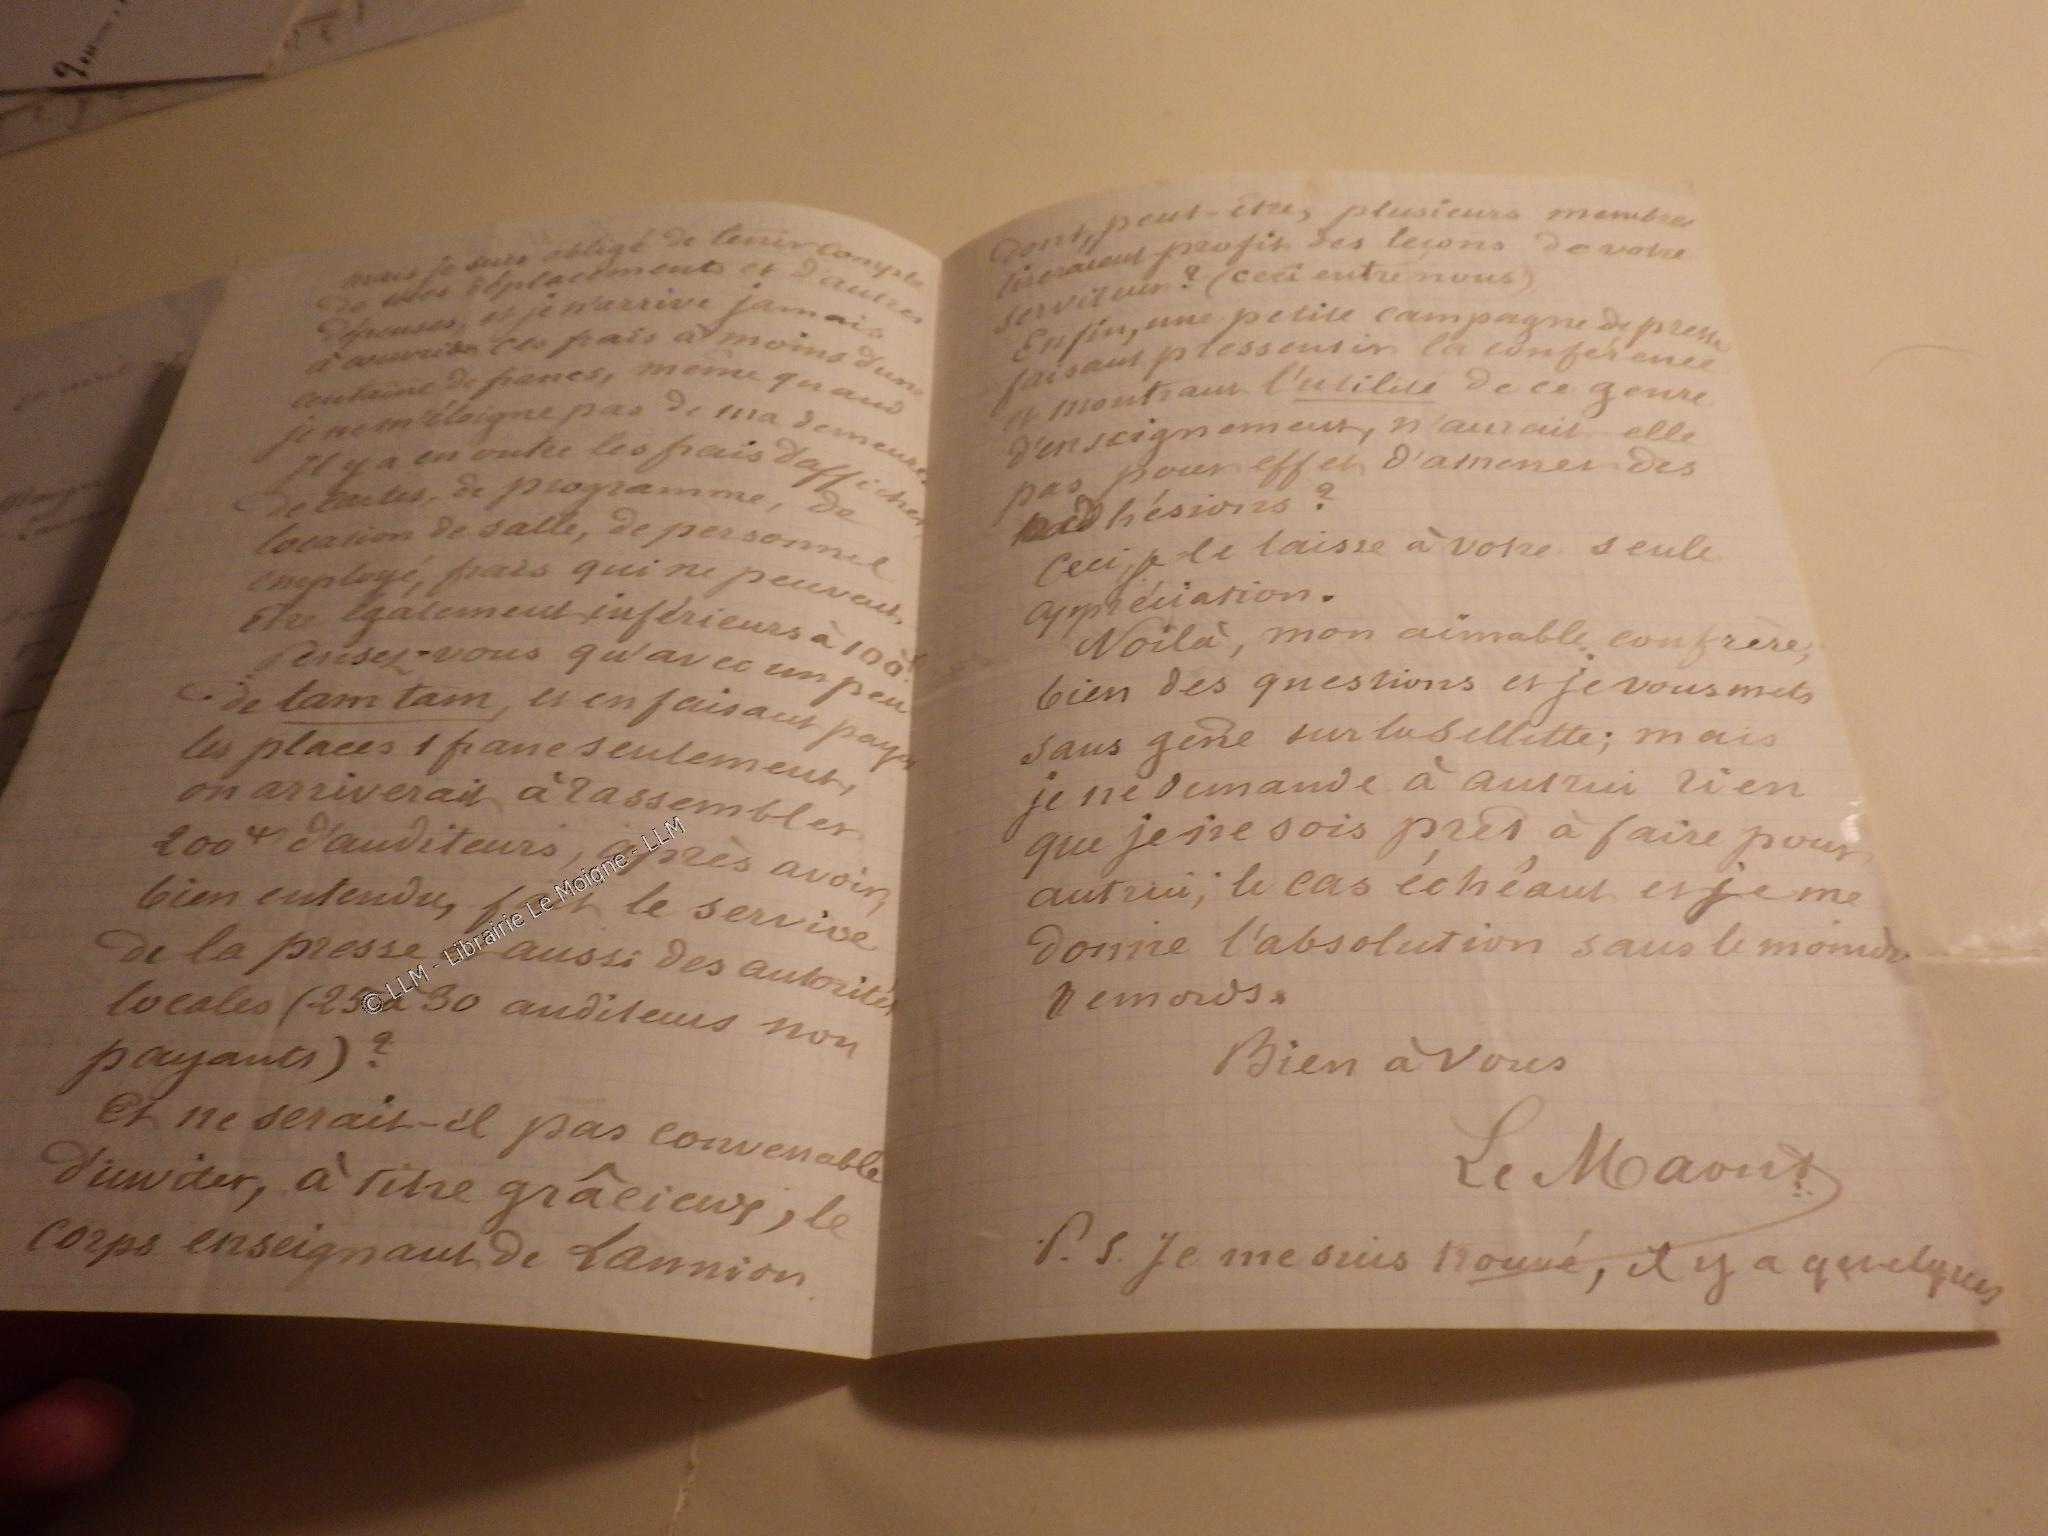 mais je suis obligé de tenir compte
de mes déplacements et d'autres
dépenses, et je n'arrive jamais
à couvrir ces frais à moins d'une
centaine de francs, même quand
je ne m'éloigne pas de ma demeure.
Il y a en outre les frais d'affiches,
de cartes, de programme, de
location de salle, de personnel
employé, frais qui ne peuvent
être également inférieurs à 100f.
Pensez-vous qu'avec un peu
de tam tam, et en faisant payer
les places 1 franc seulement,
on arriverait à rassembler
200 d'auditeurs, après avoir,
bien entendu, fait le service
de la presse aussi des autorités
locales (25 à 30 auditeurs non
payants) ?
Et ne serait-il pas convenable
d'inviter, à titre grâcieux, le
corps enseignant de Lannion
dont, peut-être, plusieurs membres
tireraient profit des leçons de votre
serviteur ? (ceci entre nous)
Enfin, une petite campagne de presse
faisant pressentir la conférence
et montrant l'utilité de ce genre
d'enseignement, n'aurait-elle
pas pour effet d'amener des
adhésions ?
Ceci, je le laisse à votre seule
appréciation.
Voilà, mon aimable confrère,
bien des questions et je vous mets
sans gêne sur la sellette ; mais
je ne demande à autrui rien
que je ne sois prêt à faire pour
autrui, le cas échéant et je me
donne l'absolution sans le moindre
remords.
Bien à vous
Le Maout
P. S. Je me suis trouvé, il y a quelques
© LLM - Librairie Le Moigne - LLM